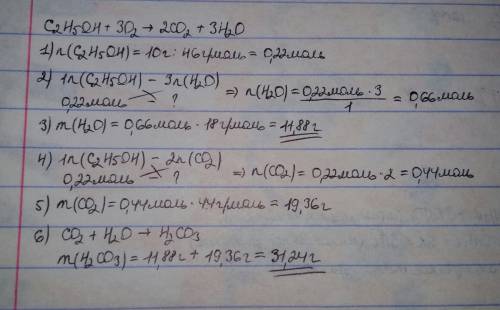 C2H5OH + 3O2 → 2CO2 + 3H2O
1) n(C2H5OH) = 10г : 46г/моль = 0,22моль
2) 1n(C2H5OH) – 3n(H2O)
0,22моль – ? ⇒ n(H2O) = 0,22моль · 3 / 1 = 0,66моль
3) m(H2O) = 0,66моль · 18г/моль = 11,88г
4) 1n(C2H5OH) – 2n(CO2)
0,22моль – ? ⇒ n(CO2) = 0,22моль · 2 = 0,44моль
5) m(CO2) = 0,44моль · 44г/моль = 19,36г
6) CO2 + H2O → H2CO3
m(H2CO3) = 11,88г + 19,36г = 31,24г